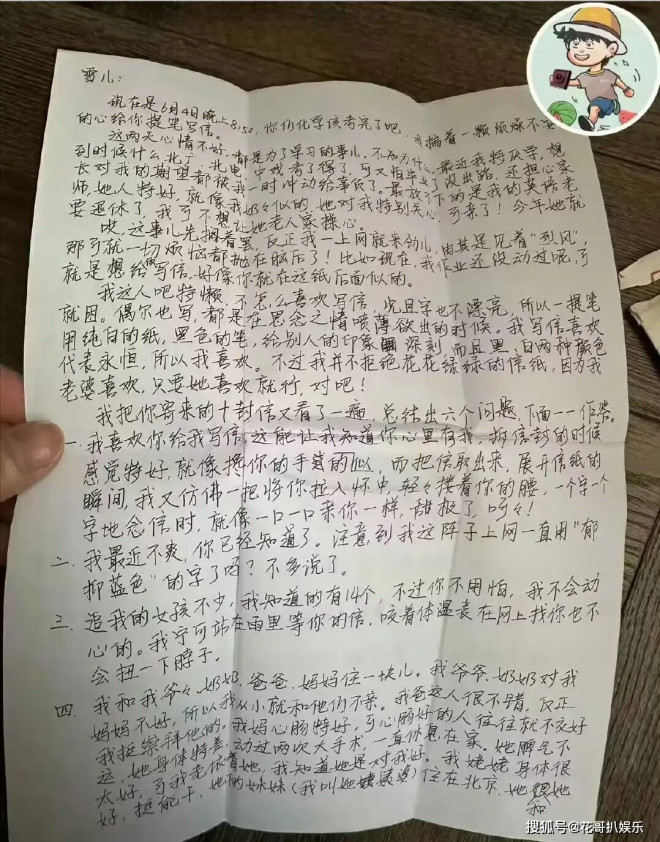 雪儿：
现在是6月4日晚上8:50，你们化学该考完了吧，我揣着一颗烦燥不安
的心给你提笔写信。
这两天心情不好，都是为了学习的事儿，不知为什么，最近我特厌学，想
到时候什么北广、北电、中戏考了得了，可又怕毕业了没出路，还担心家
长对我的期望都被我一时冲动给辜负了。最放不下的是我的英语老
师，她人特好，就像我奶々似的，她对我特别关心，可亲了！今年她就
要退休了，我可不想让她老人家操心。
哎，这事儿先搁着罢，反正我一上网就来劲儿，由其是见着“烈风”，
那可就一切烦恼都抛在脑后了！比如现在，我作业还没动过呢，可
就是想给你写信，好像你就在这纸后面似的。
我这人吧特懒，不怎么喜欢写信，况且字也不漂亮，所以一提笔
就困。偶尔也写，都是在思念之情喷薄欲出的时候。我写信喜欢
用纯白的纸，黑色的笔，给别人的印象深刻，而且黑、白两种颜色
代表永恒，所以我喜欢。不过我并不拒绝花花绿绿的信纸，因为我
老婆喜欢，只要她喜欢就行，对吧！
我把你寄来的十封信又看了一遍，总结出六个问题，下面一一作答。
一、我喜欢你给我写信，这能让我知道你心里有我，拆信封的时候
感觉特好，就像搀你的手似的，而把信取出来，展开信纸的
瞬间，我又仿佛一把将你拉入怀中，轻々搂着你的腰，一个字一个
字地念信时，就像一口一口亲你一样，甜极了，呵々！
二、我最近不爽，你已经知道了。注意到我这阵子上网一直用“郁
抑蓝色”的字了吗？不多说了。
三、追我的女孩不少，我知道的有14个，不过你不用怕，我不会动
心的。我宁可站在雨里等你的信，咬着体温表在网上找你也不
会扭一下脖子。
四、我和我爷々、奶奶、爸爸、妈妈住一块儿。我爷爷、奶奶对我
妈妈不好，所以我从小就和他们不亲。我爸这人很不错，反正
我挺崇拜他的。我妈心肠特好，可心肠好的人往往就不交好
运，她身体特差，动过两次大手术，一直休息在家。她脾气不
太好，可我老依着她，我知道她是对我好。我姥姥身体很
好，挺能干，她的妹妹（我叫她姨婆）住在北京，她和她
搜狐号@花哥扒娱乐